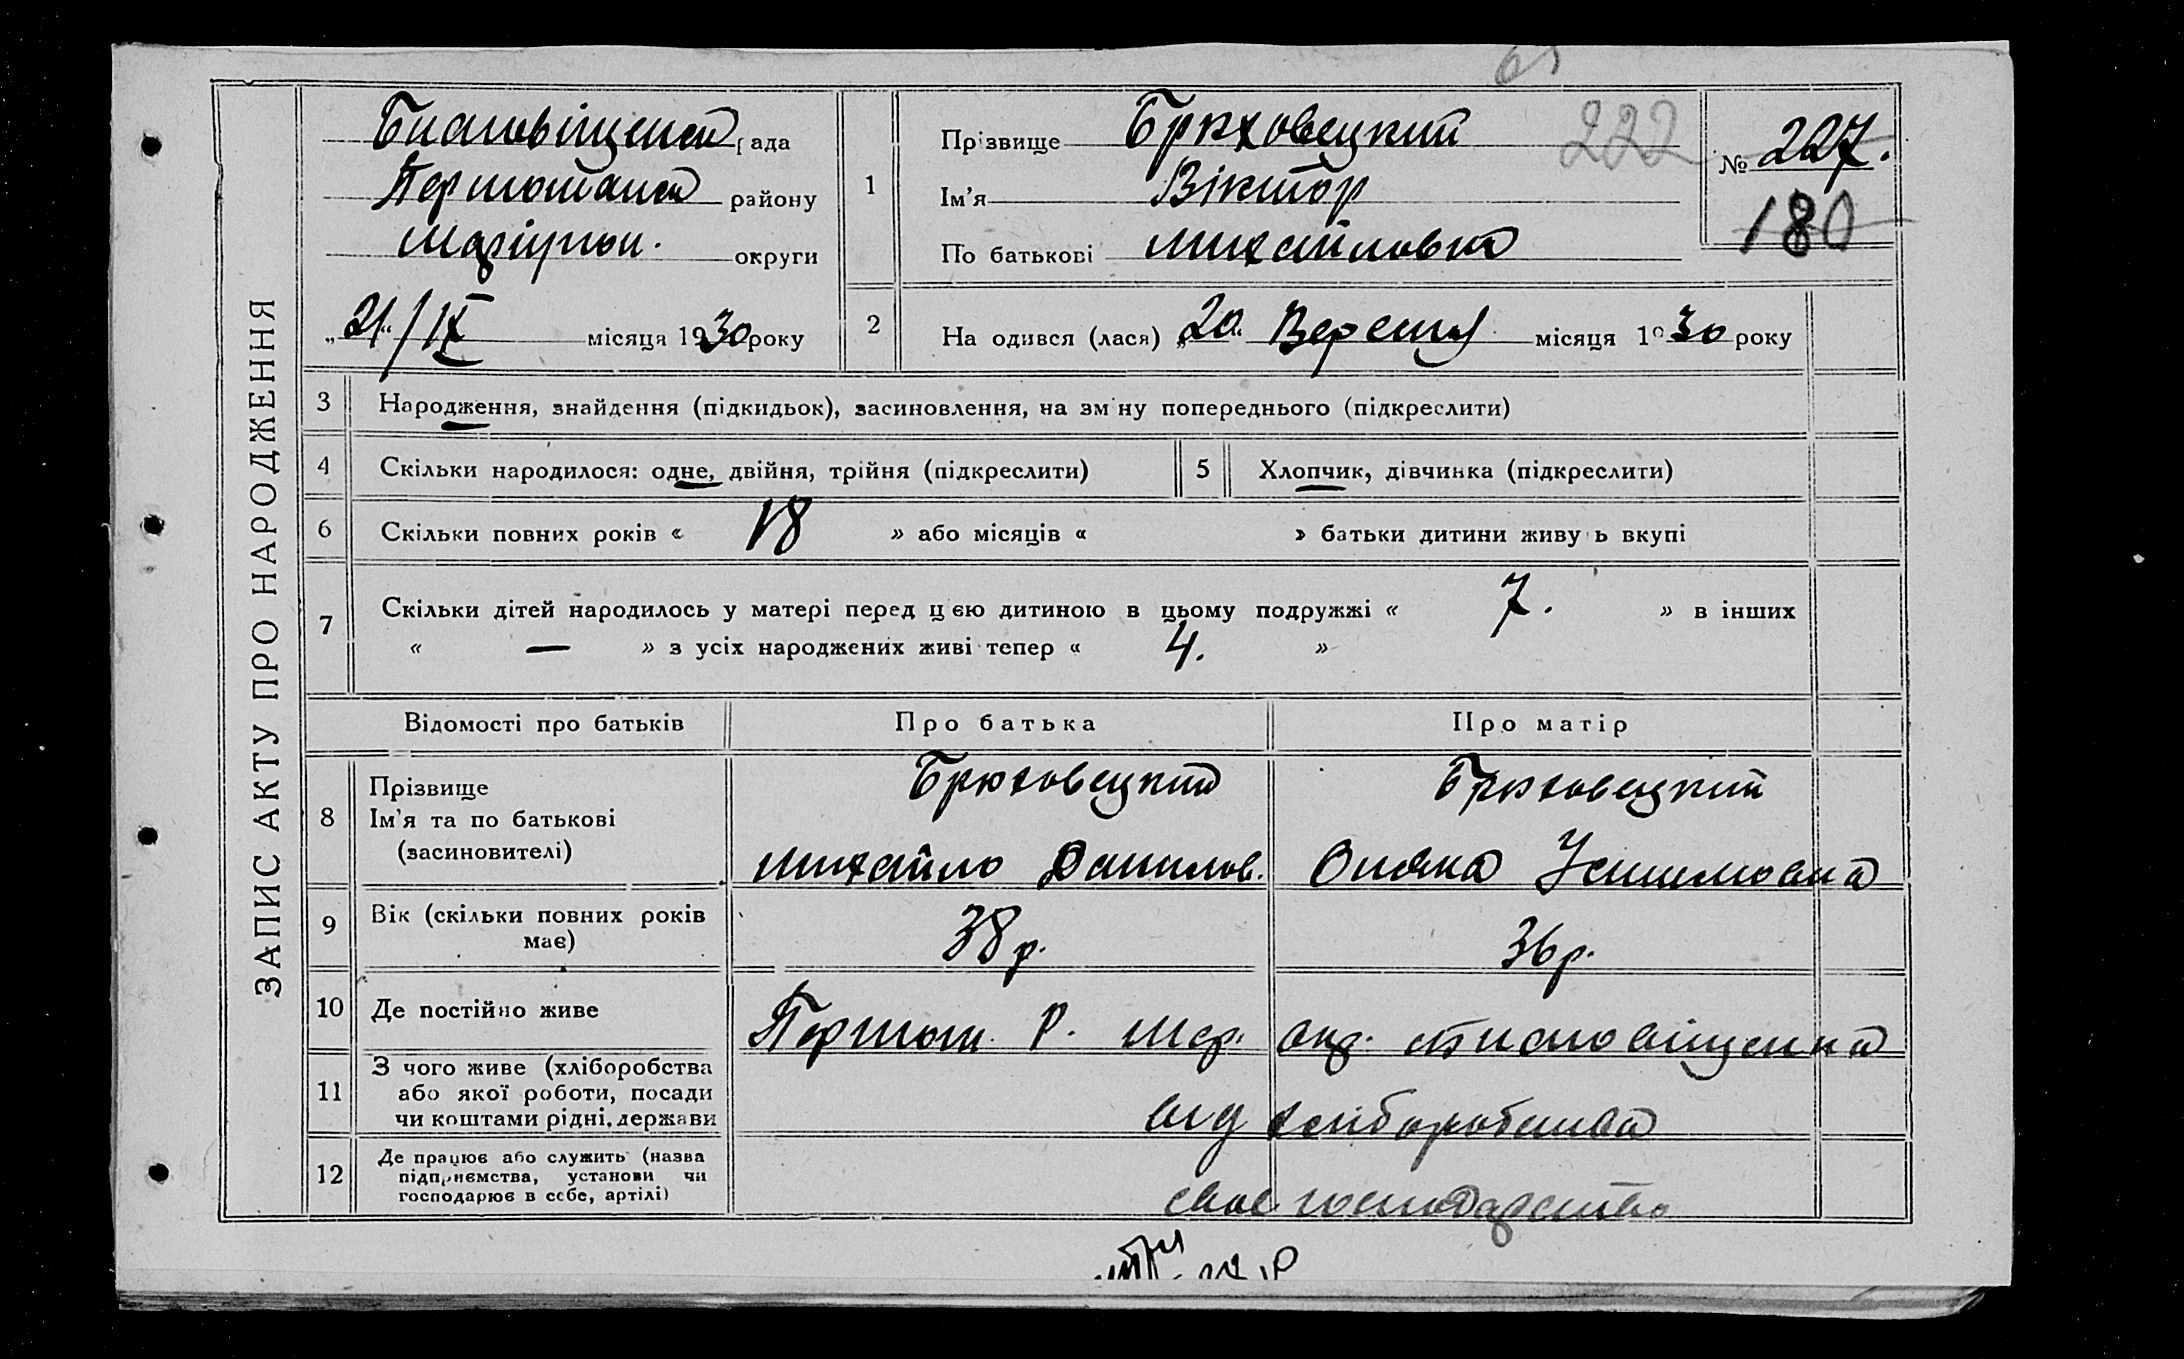 ЗАПИС АКТУ ПРО НАРОДЖЕННЯ
рада
району
округи
„21“/IX місяця 1930 року
1
Прізвище Брюховецкий
Ім'я Віктор
По батькові Михайлович
222
№ 227.
180
2
На одився (лася) „20“ Вересня місяця 1930 року
3 Народження, знайдення (підкидьок), засиновлення, на зм ну попереднього (підкреслити)
4 Скільки народилося: одне, двійня, трійня (підкреслити)
5 Хлопчик, дівчинка (підкреслити)
6 Скільки повних років « 18 » або місяців « » батьки дитини живу ь вкупі
7 Скільки дітей народилось у матері перед цією дитиною в цьому подружжі « 7. » в інших
« — » з усіх народжених живі тепер « 4. »
Відомості про батьків
Про батька
Про матір
8 Прізвище
Ім'я та по батькові
(засиновителі)
Брюховецкий
Михайло Данилов.
Брюховецкий
9 Вік (скільки повних років
має)
38 р.
36 р.
10 Де постійно живе
Р. Мар. окр.
11 З чого живе (хліборобства
або якої роботи, посади
чи коштами рідні, держави
від хліборобства
12 Де працює або служить (назва
підприємства, установи чи
господарює в себе, артілі)
своє господарство